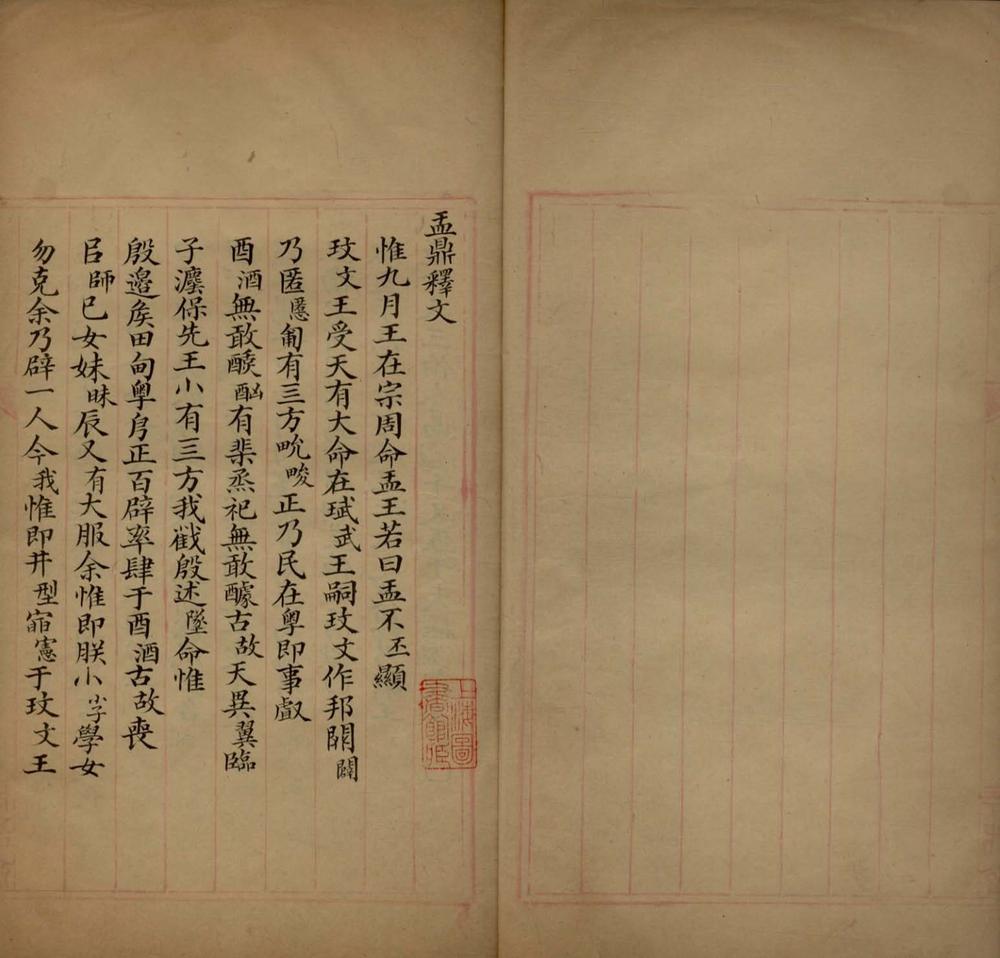 盂鼎釋文
惟九月王在宗周命盂王若曰盂不丕顯
玟文王受天有大命在珷武王嗣玟文作邦闢闢
乃匿慝匍有三方畯畯正乃民在雩即事䖒
酉酒無敢酸酗有祡烝祀無敢醵古故天異翼臨
子灋保先王小有三方我戡殷述墜命惟
殷邊矦田甸雩正百辟率肆于酉酒古故喪
𠂤師巳女妹昧辰又有大服余惟即朕小小子學女
勿克余乃辟一人今我惟即井型㐭憲于玟文王
上海圖書館藏